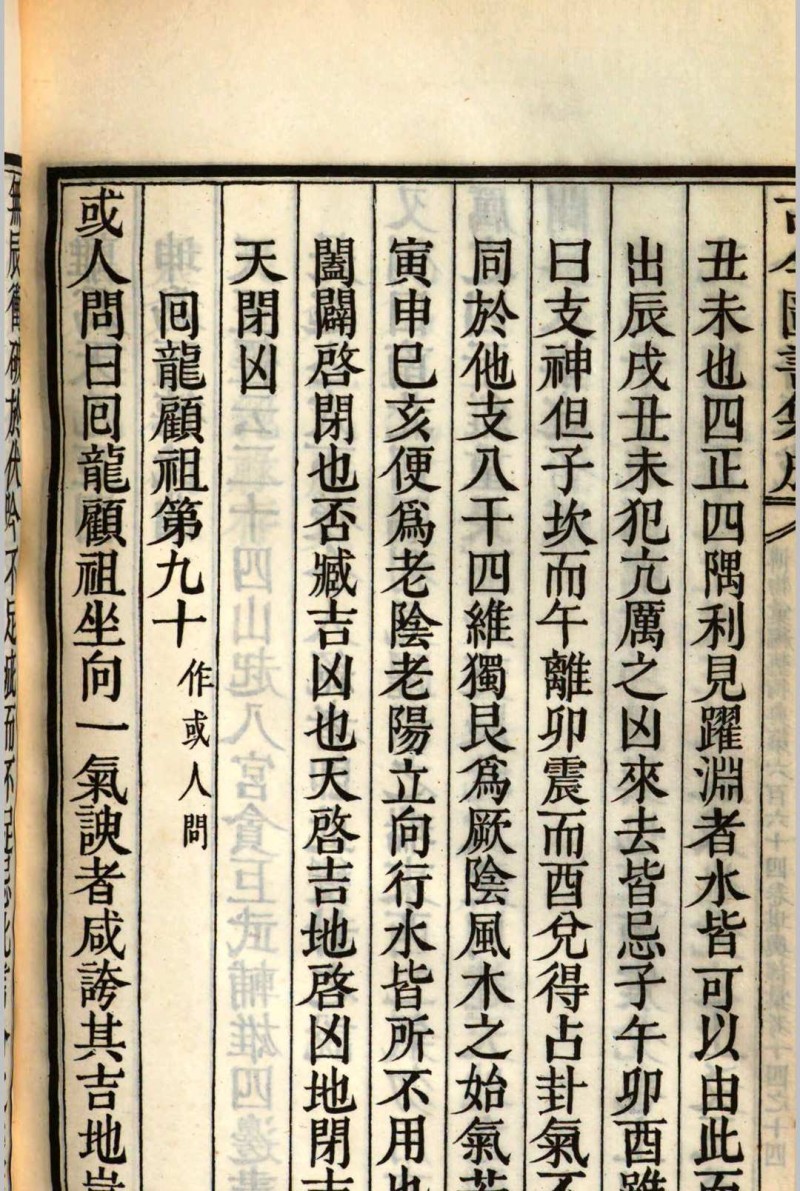 古今圖書集成
丑未也四正四隅利見躍淵者水皆可以由此而
出辰戌丑未犯亢厲之凶來去皆忌子午卯酉雖
曰支神但子坎而午離卯震而酉兌得占卦氣不
同於他支八干四維獨艮爲厥陰風木之始氣若
寅申巳亥便爲老陰老陽立向行水皆所不用也
闔闢啓閉也否臧吉凶也天啓吉地啓凶地閉吉
天閉凶
囘龍顧祖第九十
作或人問
或人問曰囘龍顧祖坐向一氣諛者咸誇其吉地豈